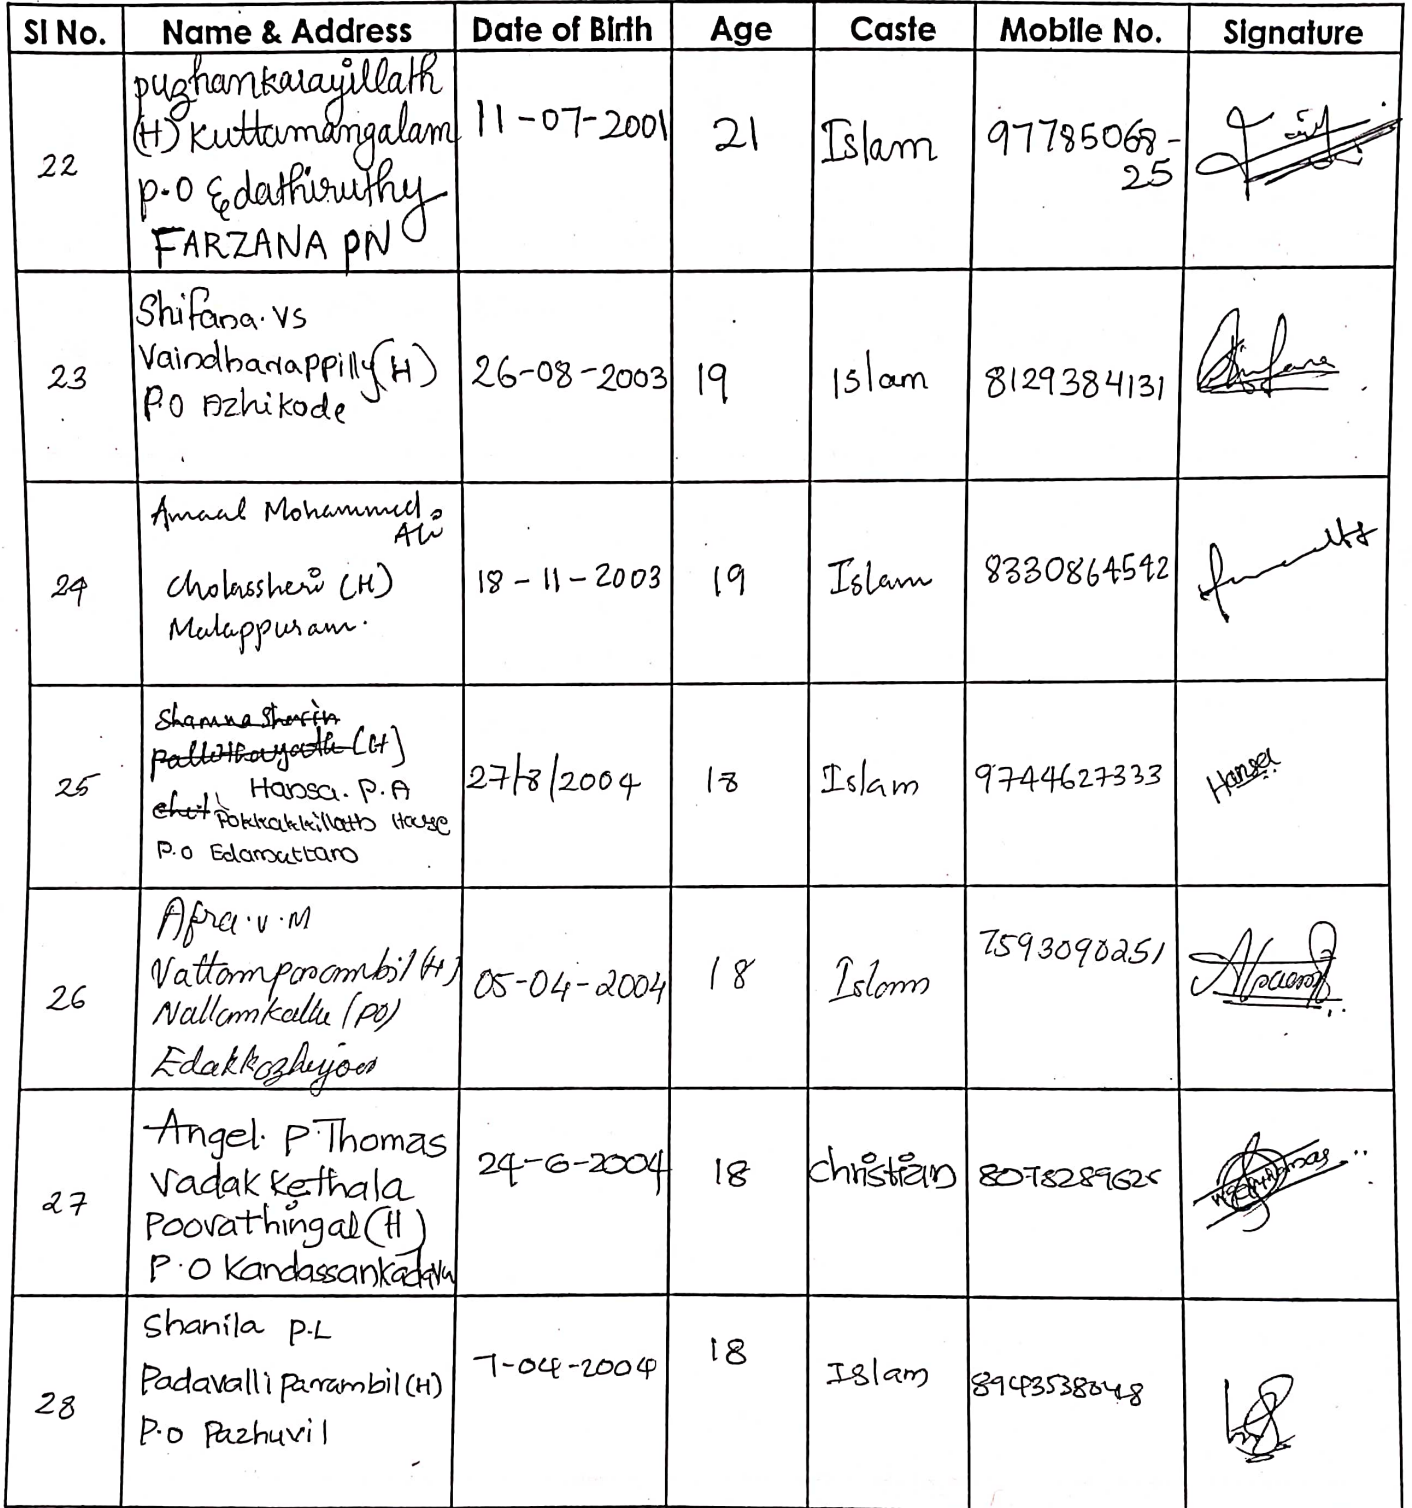 SI No. Name & Address Date of Birth Age Caste Mobile No. Signature
22
puzhankarayillath
(H) Kuttamangalam
p.o Edathiruthy
FARZANA PN
11-07-2001
21
Islam
97785068-
25
23
Shifana.VS
Vaindhanappilly (H)
P.O Azhikode
26-08-2003
19
Islam
8129384131
Shifana
24
Amaal Mohammed
Ali
Cholassheri (H)
Malappuram.
18-11-2003
19
Islam
8330864542
25
Shamna Sherin
(H)
Hansa. P.A
Pokkakkillath House
P.o Edamuttam
27/8/2004
18
Islam
9744627333
Hansa
26
Afra.v.M
Vattamparambil (H)
Nallamkallu (po)
Edakkazhiyoor
05-04-2004
18
Islam
7593090251
27
Angel. P.Thomas
Vadakkethala
Poovathingal (H)
P.O Kandassankadavu
24-6-2004
18
Christian
28
Shanila P.L
Padavalli parambil (H)
P.o Pazhuvil
7-04-2004
18
Islam
8943538048